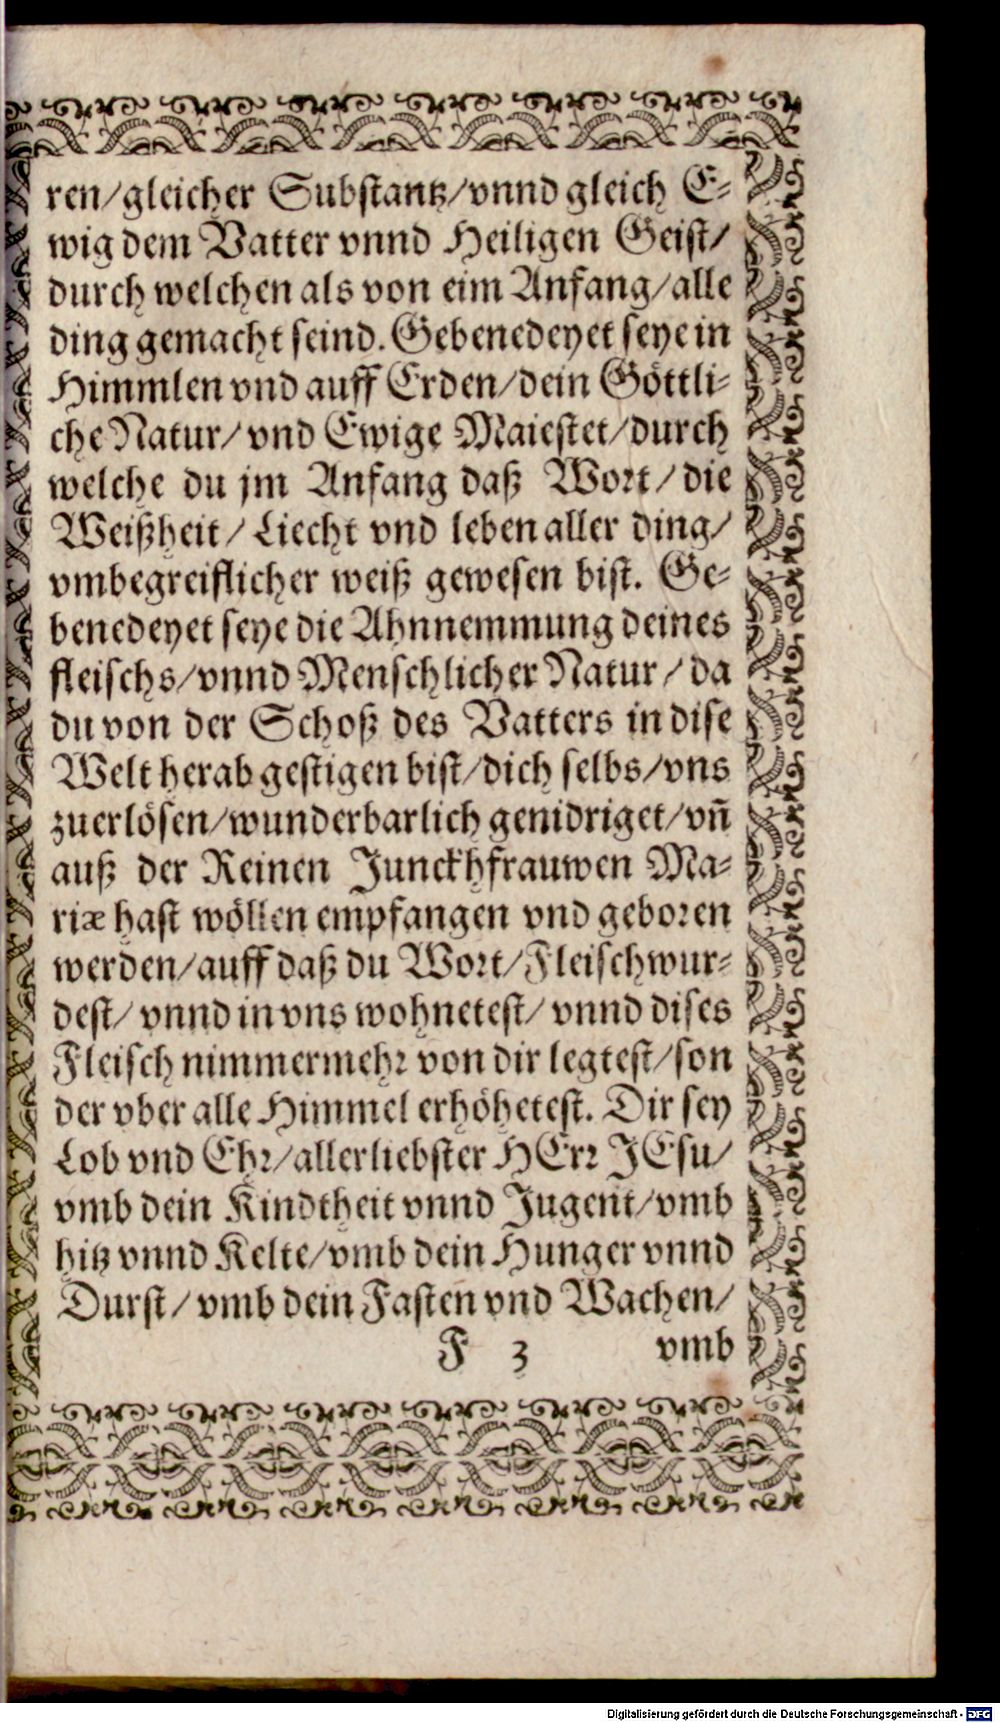 ren/gleicher Substantz/vnnd gleich E-
wig dem Vatter vnnd Heiligen Geist/
durch welchen als von eim Anfang/alle
ding gemacht seind. Gebenedeyet seye in
Himmlen vnd auff Erden/dein Göttli-
che Natur/vnd Ewige Maiestet/durch
welche du jm Anfang daß Wort/die
Weißheit/Liecht vnd leben aller ding/
vmbegreiflicher weiß gewesen bist. Ge-
benedeyet seye die Ahnnemmung deines
fleischs/vnnd Menschlicher Natur/da
du von der Schoß des Vatters in dise
Welt herab gestigen bist/dich selbs/vns
zuerlösen/wunderbarlich genidriget/vñ
auß der Reinen Junckhfrauwen Ma-
riæ hast wöllen empfangen vnd geboren
werden/auff daß du Wort/Fleisch wur-
dest/vnnd in vns wohnetest/vnnd dises
Fleisch nimmermehr von dir legtest/son
der vber alle Himmel erhöhetest. Dir sey
Lob vnd Ehr/allerliebster HErr JEsu/
vmb dein Kindtheit vnnd Jugent/vmb
hitz vnnd Kelte/vmb dein Hunger vnnd
Durst/vmb dein Fasten vnd Wachen/
F 3 vmb
Digitalisierung gefördert durch die Deutsche Forschungsgemeinschaft - DFG